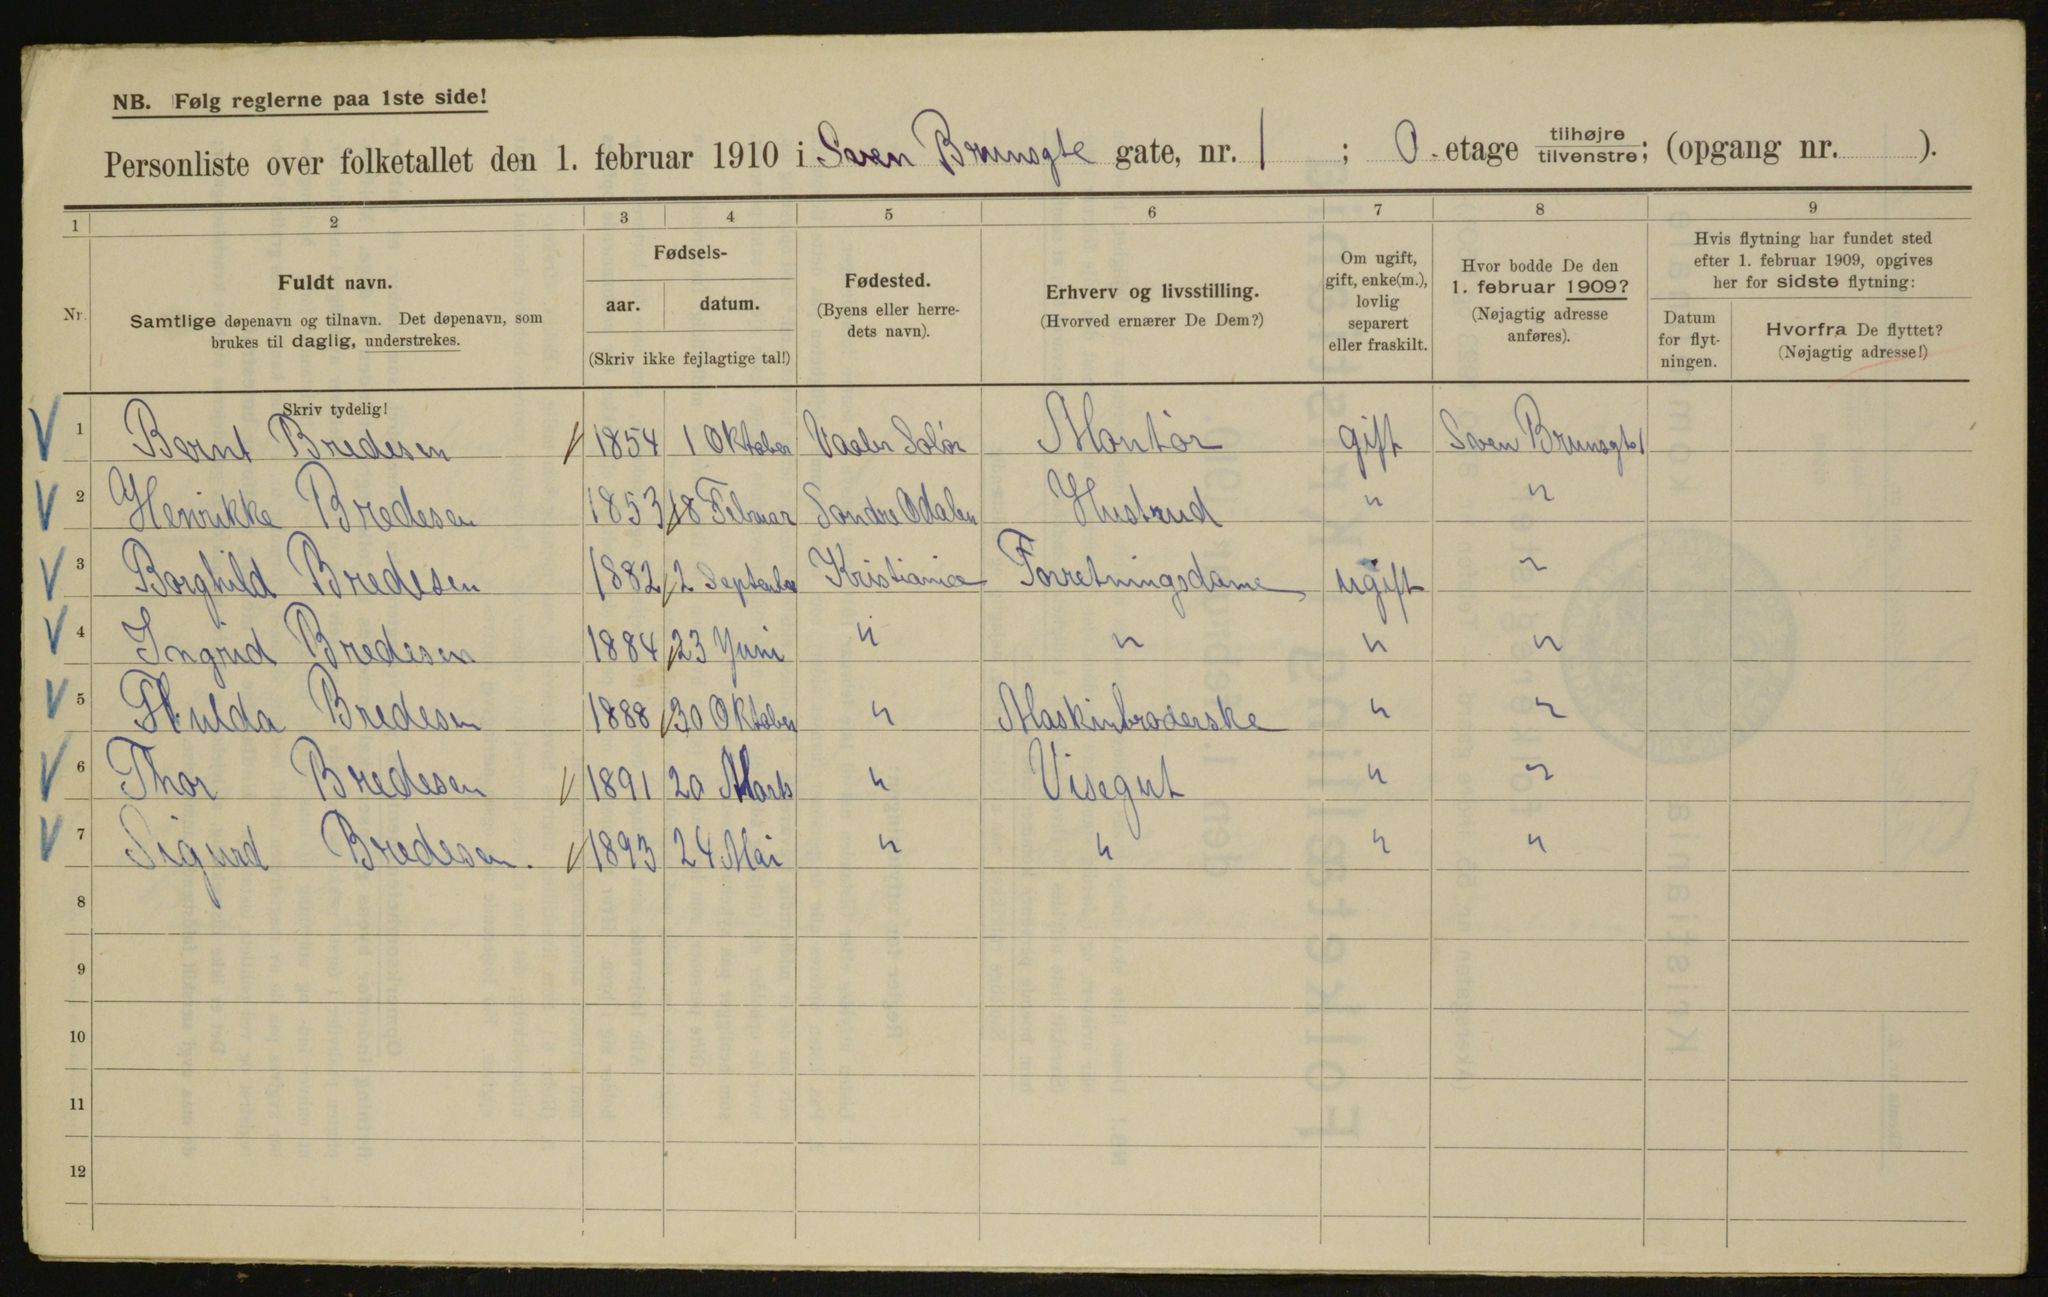 NB. Følg reglerne paa 1ste side!
Personliste over folketallet den 1. februar 1910 i Sven Brunsgte gate, nr. 1 ; O. etage tilhøjre/tilvenstre; (opgang nr. ).
1 2 3 4 5 6 7 8 9
Nr.
Fuldt navn.
Samtlige døpenavn og tilnavn. Det døpenavn, som
brukes til daglig, understrekes.
Fødsels-
aar. datum.
(Skriv ikke fejlagtige tal!)
Fødested.
(Byens eller herre-
dets navn).
Erhverv og livsstilling.
(Hvorved ernærer De Dem?)
Om ugift,
gift, enke(m.),
lovlig
separert
eller fraskilt.
Hvor bodde De den
1. februar 1909?
(Nøjagtig adresse
anføres).
Hvis flytning har fundet sted
efter 1. februar 1909, opgives
her for sidste flytning:
Datum
for flyt-
ningen.
Hvorfra De flyttet?
(Nøjagtig adresse!)
Skriv tydelig!
1 Bernt Bredesen 1854 1 Oktober Vaaler Solør Montør gift Sven Brunsgte 1
2 Henrikke Bredesen 1853 18 Februar Søndre Odalen Hustrud " "
3 Borghild Bredesen 1882 2 September Kristiania Forretningsdame ugift "
4 Ingrid Bredesen 1884 23 Juni " " " "
5 Hulda Bredesen 1888 30 Oktober " Maskinbroderske " "
6 Thor Bredesen 1891 20 Marts " Visegut " "
7 Sigurd Bredesen. 1893 24 Mai " " " "
8
9
10
11
12